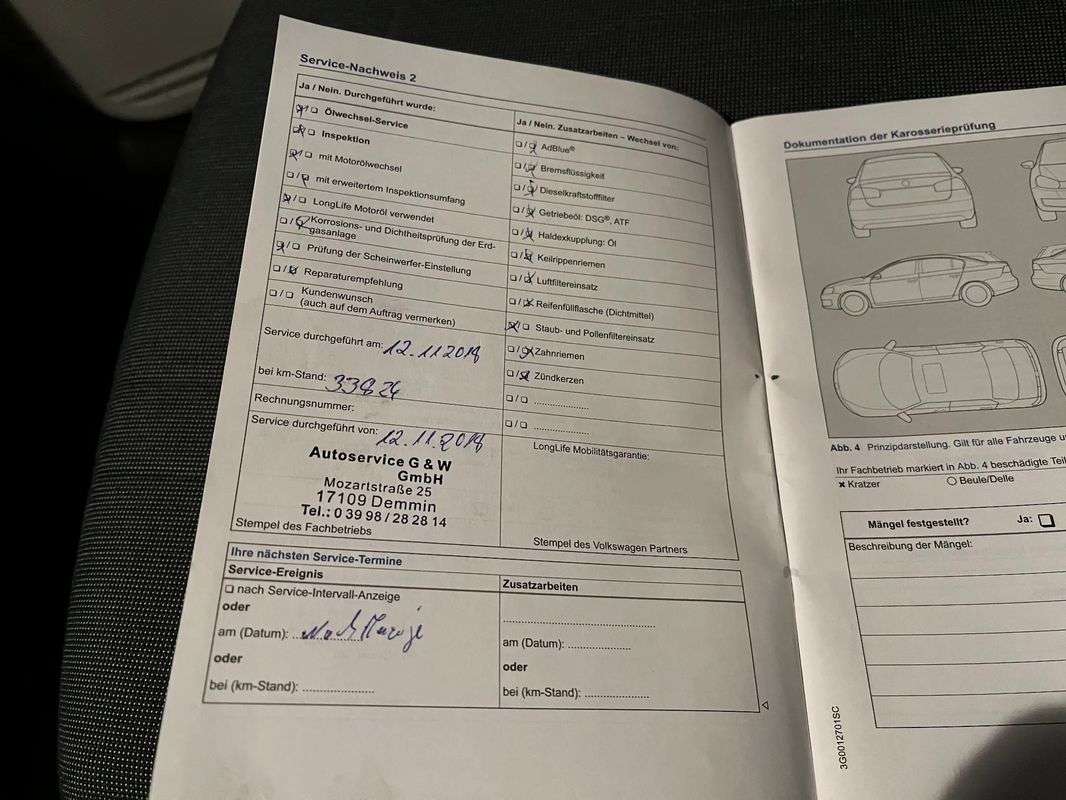 Service-Nachweis 2
Ja / Nein. Durchgeführt wurde:
Ölwechsel-Service
Inspektion
mit Motorölwechsel
mit erweitertem Inspektionsumfang
LongLife Motoröl verwendet
Korrosions- und Dichtheitsprüfung der Erd-
gasanlage
Prüfung der Scheinwerfer-Einstellung
Reparaturempfehlung
Kundenwunsch
(auch auf dem Auftrag vermerken)
Service durchgeführt am: 12.11.2018
bei km-Stand: 33824
Rechnungsnummer:
Service durchgeführt von: 12.11.2018
Autoservice G & W
GmbH
Mozartstraße 25
17109 Demmin
Tel.: 0 39 98 / 28 28 14
Stempel des Fachbetriebs
Ja / Nein. Zusatzarbeiten – Wechsel von:
AdBlue®
Bremsflüssigkeit
Dieselkraftstofffilter
Getriebeöl: DSG®, ATF
Haldexkupplung: Öl
Keilrippenriemen
Luftfiltereinsatz
Reifenfüllflasche (Dichtmittel)
Staub- und Pollenfiltereinsatz
Zahnriemen
Zündkerzen
LongLife Mobilitätsgarantie:
Stempel des Volkswagen Partners
Ihre nächsten Service-Termine
Service-Ereignis
nach Service-Intervall-Anzeige
oder
am (Datum): Nach Anzeige
oder
bei (km-Stand):
Zusatzarbeiten
am (Datum):
oder
bei (km-Stand):
Dokumentation der Karosserieprüfung
Abb. 4 Prinzipdarstellung. Gilt für alle Fahrzeuge
Ihr Fachbetrieb markiert in Abb. 4 beschädigte
× Kratzer
Beule/Delle
Mängel festgestellt? Ja:
Beschreibung der Mängel:
3G0012701SC